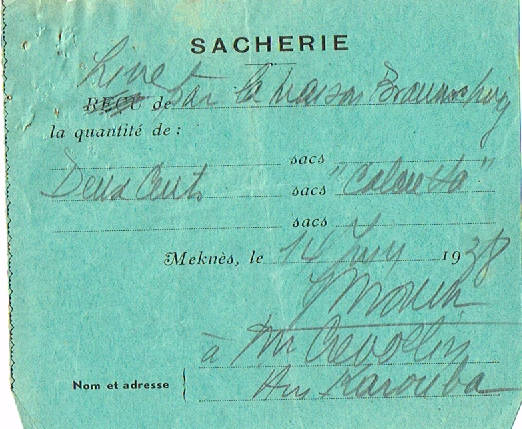 SACHERIE
Livré
REÇU de par la maison Braunschvig
la quantité de :
sacs
Deux Cents sacs "Calcutta"
sacs
Meknès, le 14 Juin 1938
à Mr
Nom et adresse Karouba